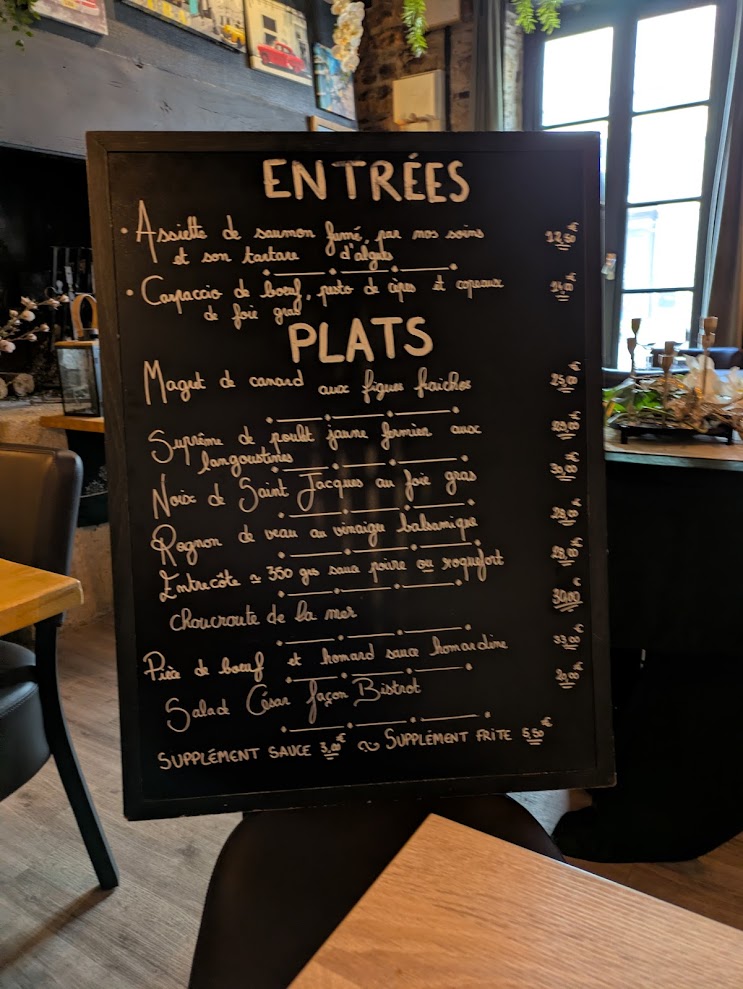 ENTRÉES
• Assiette de saumon fumé, par nos soins 12,50€
et son tartare d'algues
• Carpaccio de bœuf, pesto de cèpes et copeaux 14,00€
de foie gras
PLATS
Magret de canard aux figues fraiches 25,00€
Suprême de poulet jaune fermier aux 29,00€
langoustines
Noix de Saint Jacques au foie gras 30,00€
Rognon de veau au vinaigre balsamique 28,00€
Entrecôte ≈ 350 grs sauce poivre ou roquefort 28,00€
choucroute de la mer 30,00€
Pièce de bœuf et homard sauce homardine 33,00€
Salade César façon Bistrot 20,00€
SUPPLÉMENT SAUCE 3,00€ ~ SUPPLÉMENT FRITE 5,50€